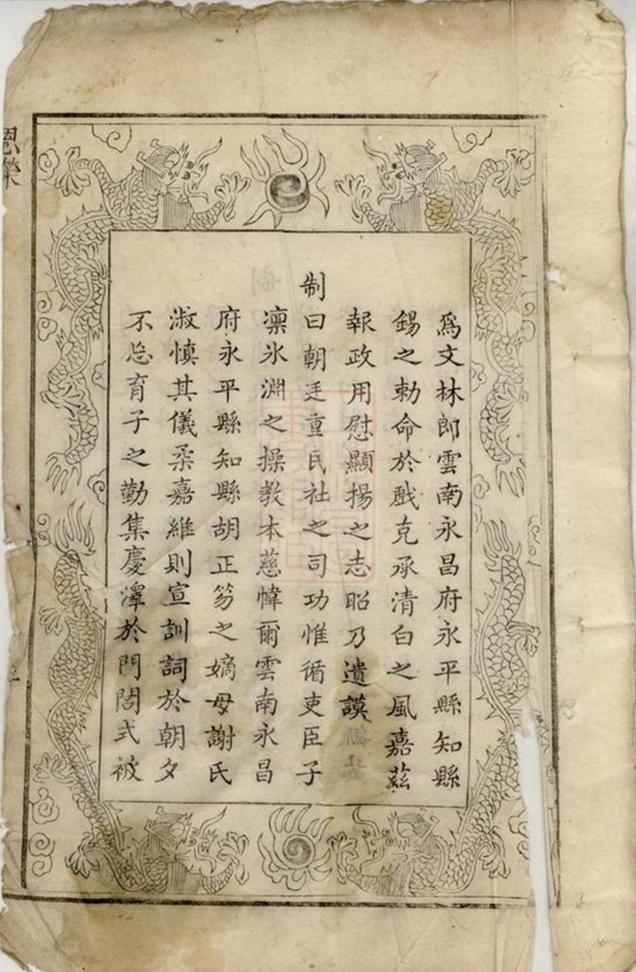 爲文林郎雲南永昌府永平縣知縣
錫之勅命於戲克承清白之風嘉茲
報政用慰顯揚之志昭乃遺謨
制曰朝廷重民社之司功惟循吏臣子
凜氷淵之操教本慈幃爾雲南永昌
府永平縣知縣胡正笏之嫡母謝氏
淑慎其儀柔嘉維則宣訓詞於朝夕
不忘育子之勤集慶澤於門閭式被
恩榮